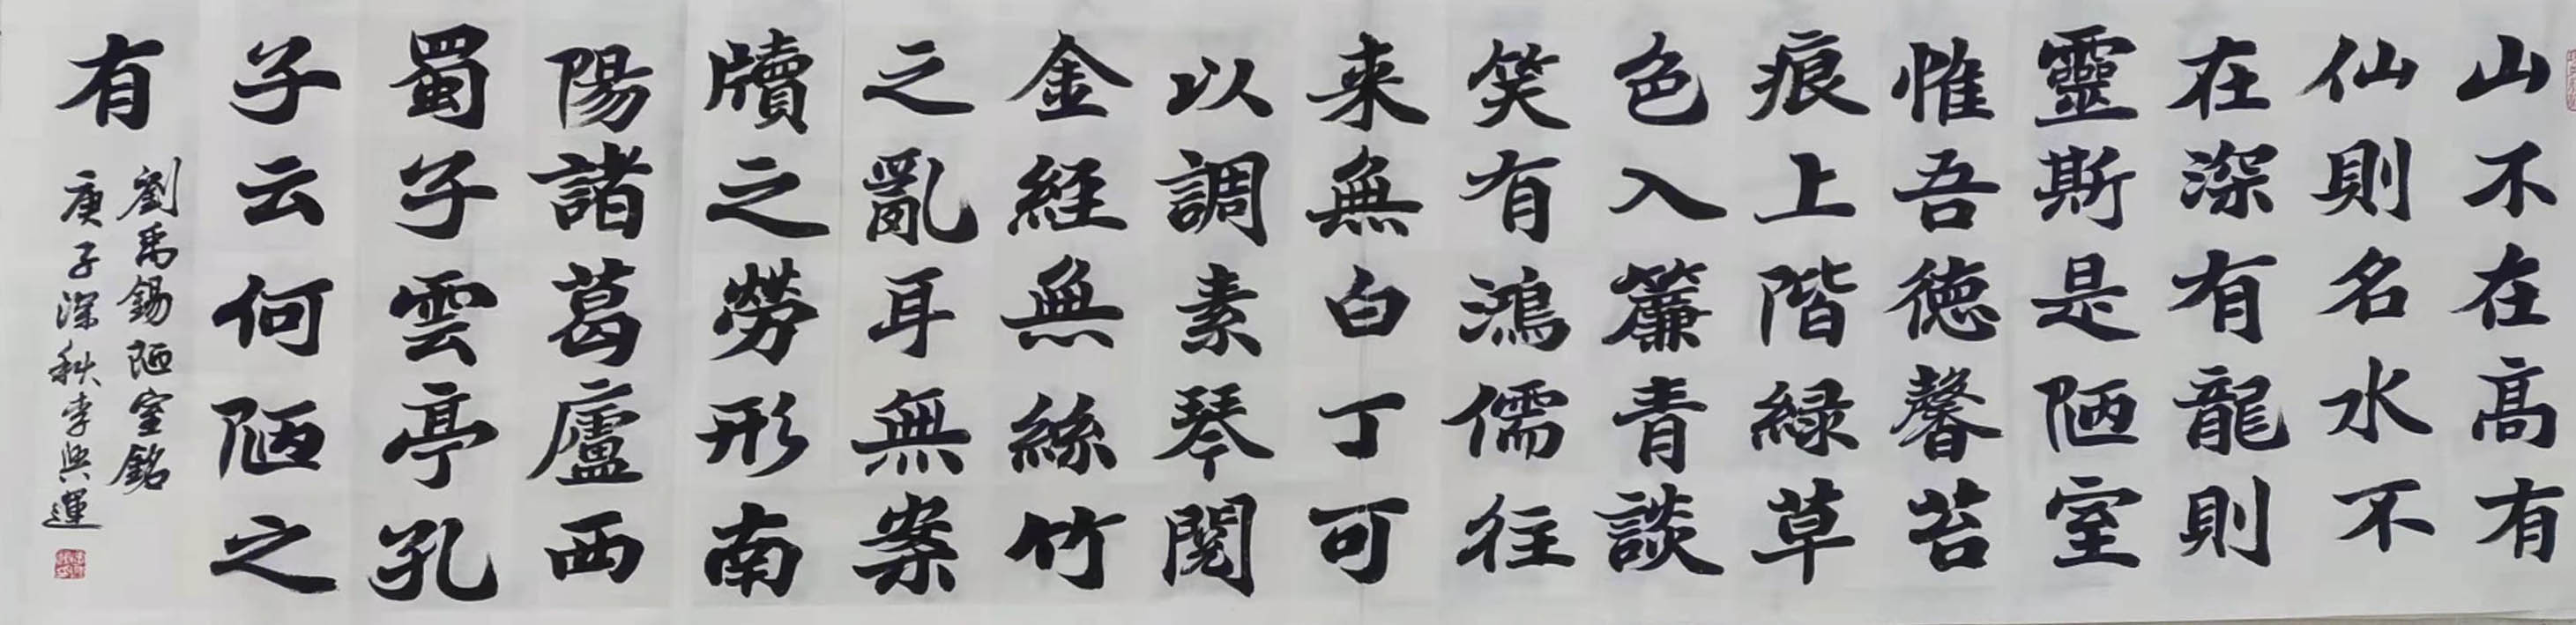 山不在高有
仙則名水不
在深有龍則
靈斯是陋室
惟吾德馨苔
痕上階緑草
色入簾青談
笑有鴻儒往
来無白丁可
以調素琴閱
金經無絲竹
之亂耳無案
牘之勞形南
陽諸葛廬西
蜀子雲亭孔
子云何陋之
有
劉禹錫陋室銘
庚子深秋李興運